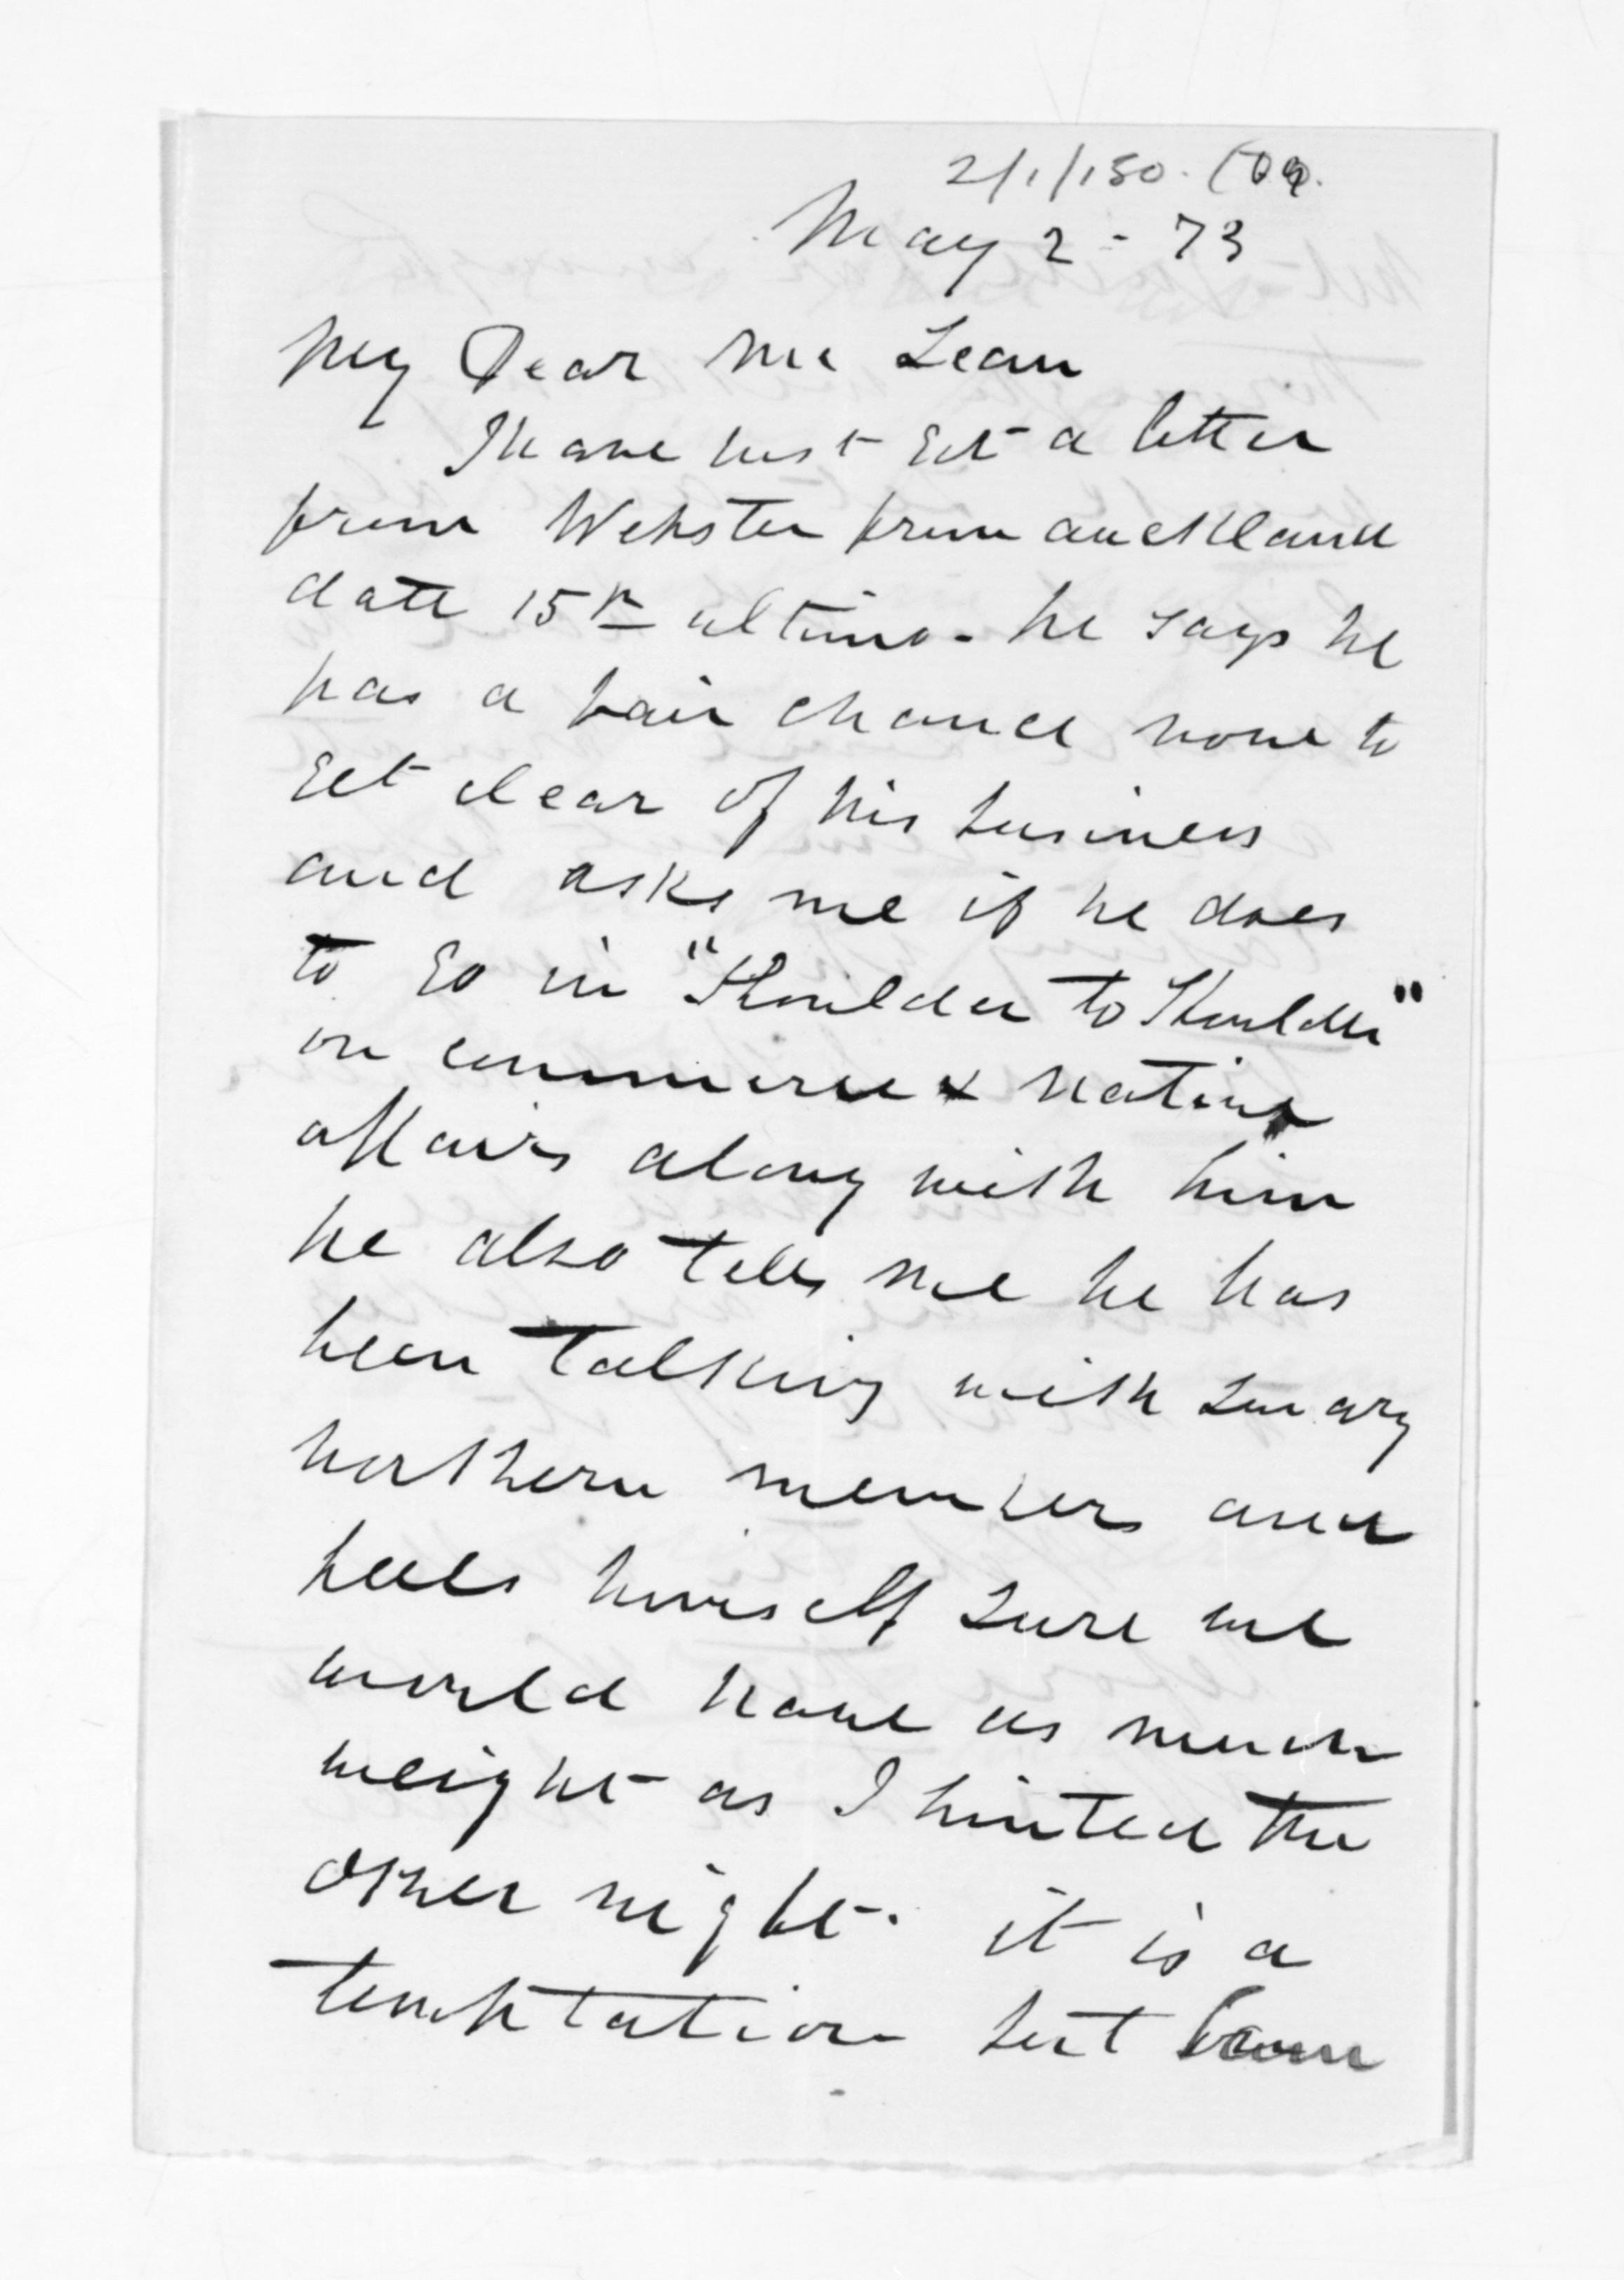 2/1/180.
May 2 - 73
My Dear Mc Lean
I have just got a letter
from Webster from auckland
date 15th ultimo - he says he
has a fair chance now to
get clear of his business
and asks me if he does
to go in "Shoulder to Shoulder"
on commerce & native
affairs along with him
he also tells me he has
been talking with many
northern members and
feels himself sure we
would have as much
weight as I hinted the
other night. it is a
temptation but